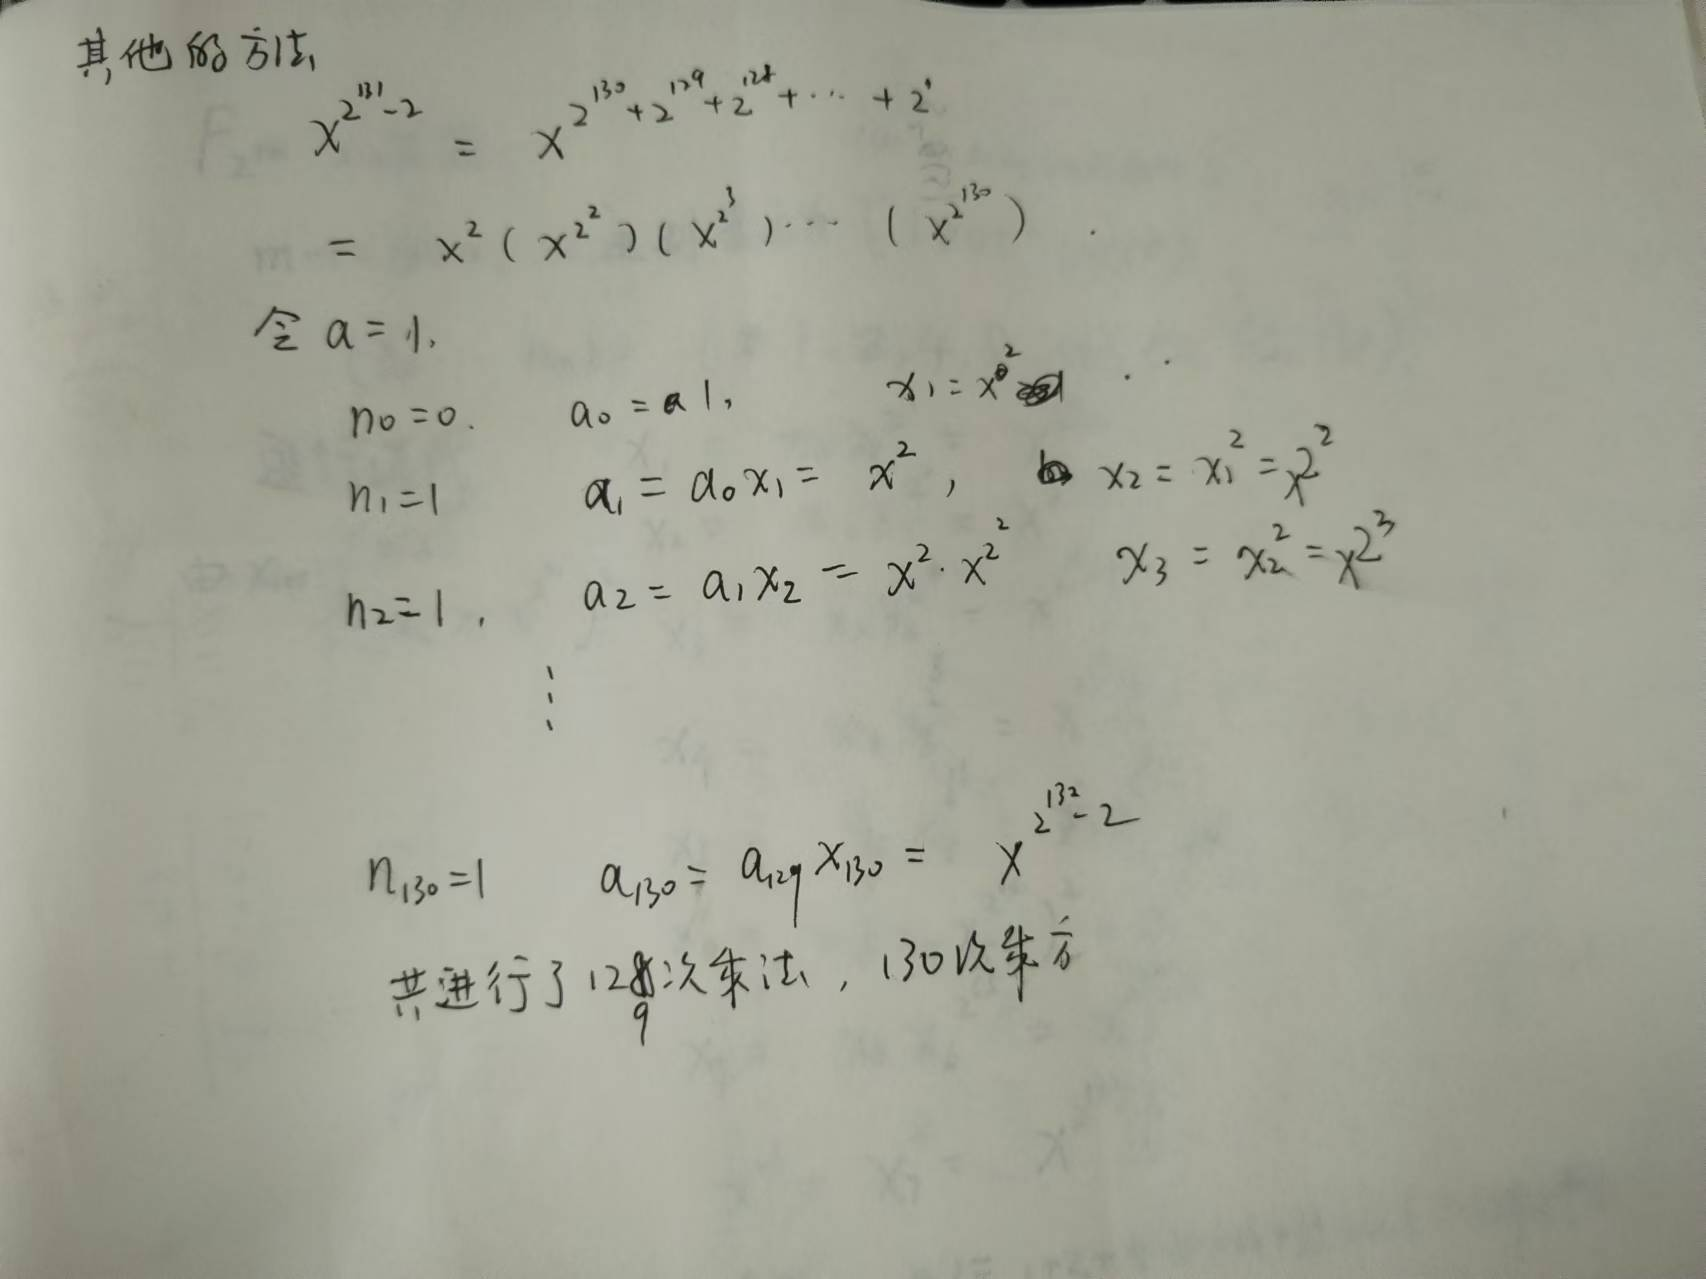 其他的方法
x^{2^{131}-2} = x^{2^{130}+2^{129}+2^{128}+⋯+2^1}
= x^2 ( x^{2^2} ) ( x^{2^3} ) ⋯ ( x^{2^{130}} ) .
令 a = 1,
n_0 = 0. a_0 = a 1, x_1 = x^2
n_1 = 1 a_1 = a_0 x_1 = x^2 , x_2 = x_1^2 = x^{2^2}
n_2 = 1 , a_2 = a_1 x_2 = x^2 · x^{2^2} x_3 = x_2^2 = x^{2^3}
⋮
n_{130} = 1 a_{130} = a_{129} x_{130} = x^{2^{132}-2}
共进行了129次乘法, 130次乘方